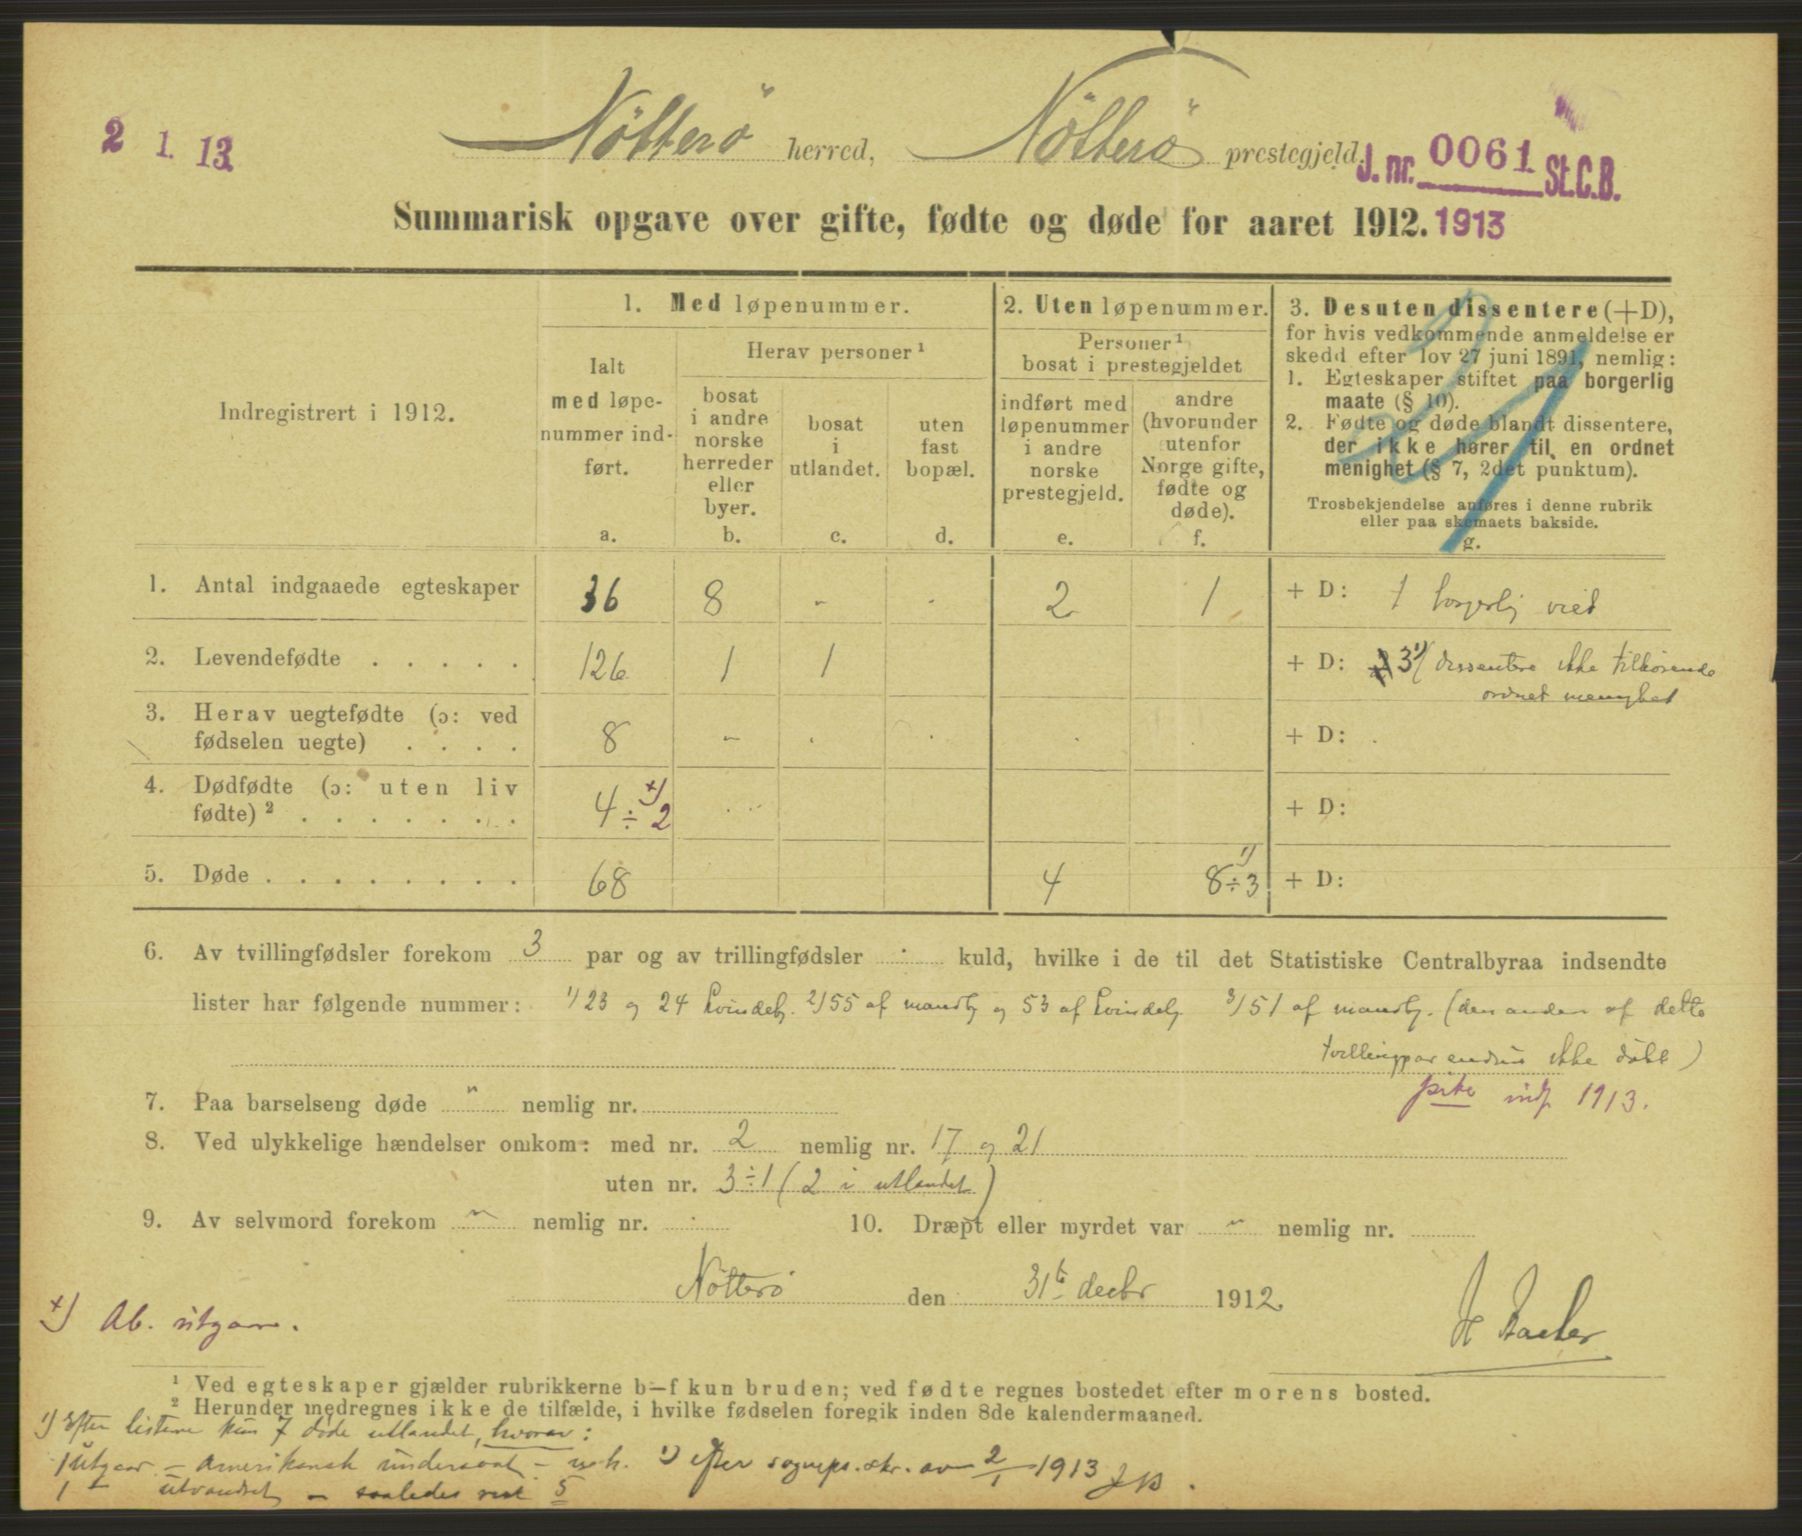 2 1. 13.
Nötterö herred, Nötterö prestegjeld.
J. nr. 0061 St.C.B.
Summarisk opgave over gifte, fødte og døde for aaret 1912. 1913
Indregistrert i 1912.
1. Med løpenummer.
Ialt
med løpe-
nummer ind-
ført.
a.
Herav personer ¹
bosat
i andre
norske
herreder
eller
byer.
b.
bosat
i
utlandet.
c.
uten
fast
bopæl.
d.
2. Uten løpenummer.
Personer ¹
bosat i prestegjeldet
indført med
løpenummer
i andre
norske
prestegjeld.
e.
andre
(hvorunder
utenfor
Norge gifte,
fødte og
døde).
f.
3. Desuten dissentere (+D),
for hvis vedkommende anmeldelse er
skedd efter lov 27 juni 1891, nemlig:
1. Egteskaper stiftet paa borgerlig
maate (§ 10).
2. Fødte og døde blandt dissentere,
der ikke hører til en ordnet
menighet (§ 7, 2det punktum).
Trosbekjendelse anføres i denne rubrik
eller paa skemaets bakside.
g.
1. Antal indgaaede egteskaper 36 8 - - 2 1 + D: 1 borgerlig viet
2. Levendefødte . . . . . 126 1 1 + D: 3 ¹) dissentere ikke tilhörende
ordnet menighet
3. Herav uegtefødte (ɔ: ved
fødselen uegte) . . . . 8 - . . . . + D: .
4. Dødfødte (ɔ: uten liv
fødte) ² . . . . . . . 4 ÷ 2 ×) + D:
5. Døde . . . . . . . . 68 4 8 ÷ 3 ¹) + D:
6. Av tvillingfødsler forekom 3 par og av trillingfødsler . kuld, hvilke i de til det Statistiske Centralbyraa indsendte
lister har følgende nummer: 1/ 23 og 24 kvindekj. 2/ 55 af mandkj og 53 af kvindekj. 3/ 51 af mandkj. (den anden af dette
tvillingpar endnu ikke döbt)
pike indf 1913.
7. Paa barselseng døde " nemlig nr.
8. Ved ulykkelige hændelser omkom: med nr. 2 nemlig nr. 17 og 21
uten nr. 3 ÷ 1 (2 i utlandet)
9. Av selvmord forekom " nemlig nr. .
10. Dræpt eller myrdet var " nemlig nr.
Nötterö den 31te decbr 1912.
×) Ab. utgaar.
¹ Ved egteskaper gjælder rubrikkerne b–f kun bruden; ved fødte regnes bostedet efter morens bosted.
² Herunder medregnes ikke de tilfælde, i hvilke fødselen foregik inden 8de kalendermaaned.
¹) Efter listerne kun 7 døde utlandet, hvorav:
1 utgaar – amerikansk undersaat –
1 – utvandret – saaledes rest 5
¹) efter sogneps. skr. av 2/1 1913